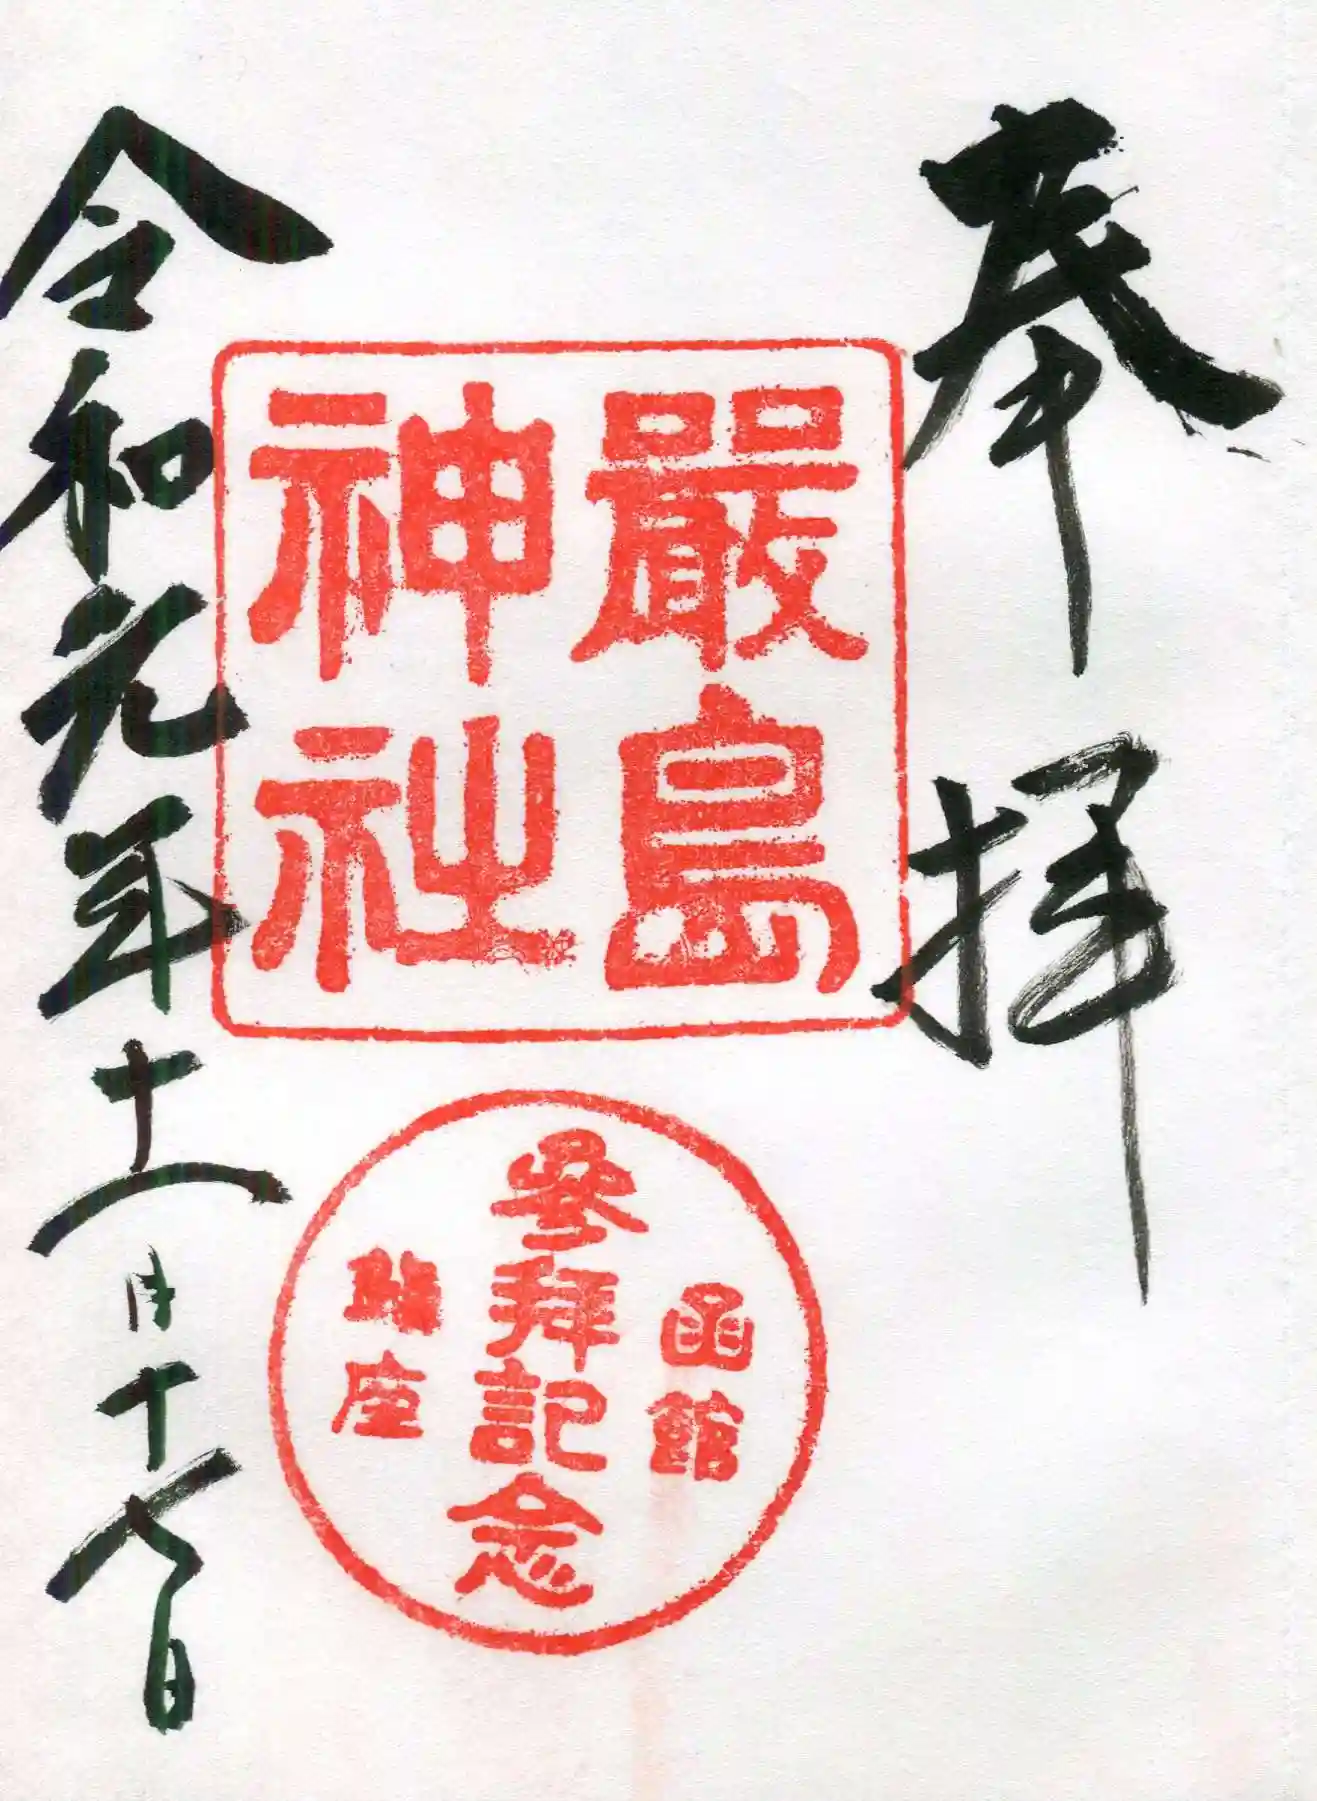 奉拝
嚴島
神社
函館
參拜記念
座
令和元年十一月十七日